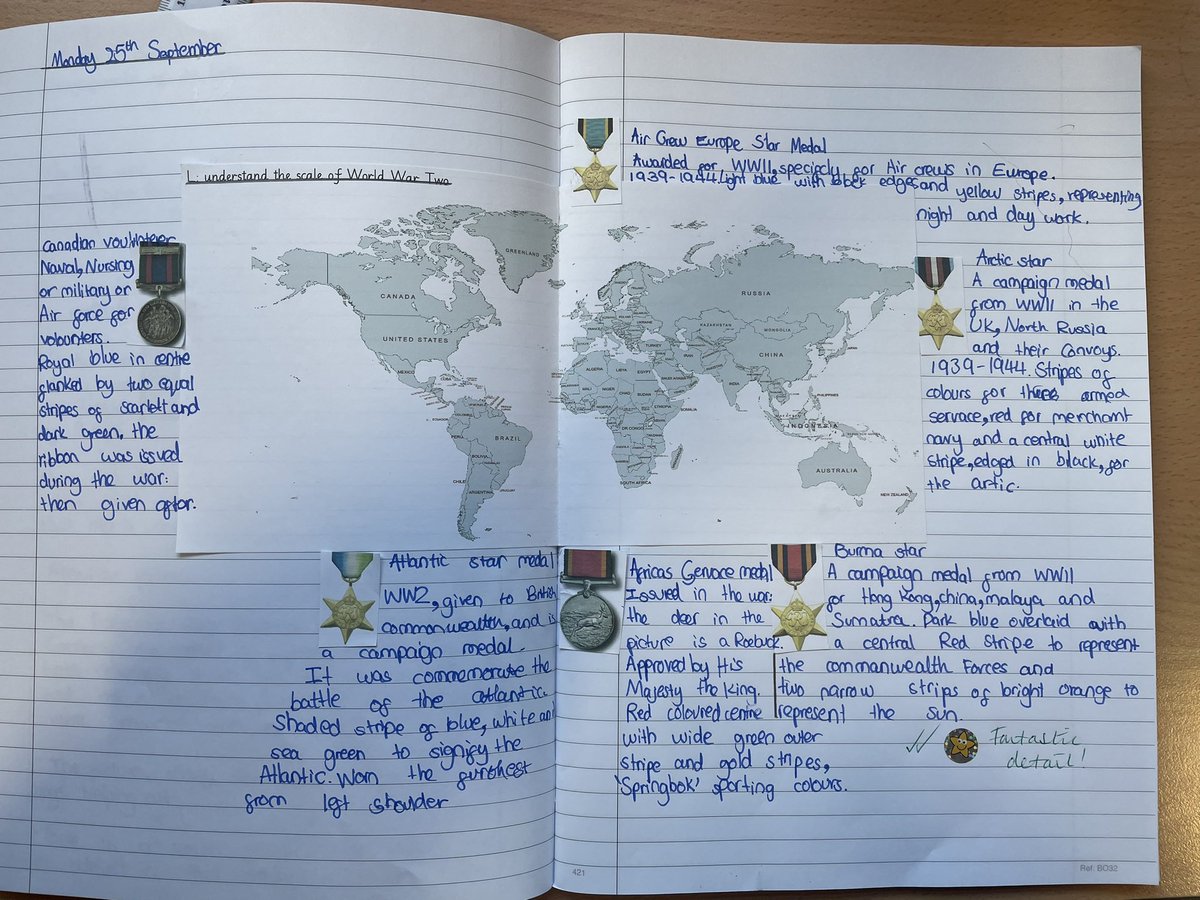 Monday 25th September
L: understand the scale of World War Two
Canadian voulnteer
Naval, Nursing
or military or
Air force for
volounters.
Royal blue in centre
flanked by two equal
stripes of scarlett and
dark green. the
ribbon was issued
during the war:
then given after.
Air Crew Europe Star Medal
Awarded for WWII, specificly for Air crews in Europe.
1939-1944. Light blue with black edges and yellow stripes, representing
night and day work.
Arctic star
A campaign medal
from WWII in the
UK, North Russia
and their Convoys.
1939-1944. Stripes of
colours for three armed
servace, red for merchant
navy and a central white
stripe, edged in black, for
the artic.
GREENLAND
CANADA
UNITED STATES
MEXICO
CUBA
BRAZIL
PERU
BOLIVIA
CHILE
ARGENTINA
URUGUAY
RUSSIA
KAZAKHSTAN
MONGOLIA
CHINA
TURKEY
IRAN
INDIA
JAPAN
PHILIPPINES
INDONESIA
AUSTRALIA
NEW ZEALAND
ALGERIA
LIBYA
EGYPT
SAUDI ARABIA
MALI
NIGER
CHAD
SUDAN
ETHIOPIA
SOMALIA
DR CONGO
SOUTH AFRICA
Atlantic star medal
WW2, given to British
commonwealth, and is
a campaign medal.
It was commemerate the
battle of the atlantic.
Shaded stripe of blue, white and
sea green to signify the
Atlantic. Worn the furthest
from left shoulder
Africas Servace medal
Issued in the war:
the deer in the
picture is a Roebuck.
Approved by His
Majesty the King.
Red coloured cenine
with wide green outer
stripe and gold stripes,
'Springbok' sporting colours.
Burma star
A campaign medal from WWII
for Hong Kong, china, malaya and
Sumatra. Dark blue overlaid with
a central Red Stripe to represent
the commanwealth Forces and
two narrow strips of bright orange to
represent the sun.
Fantastic
detail!
421
Ref: BO32